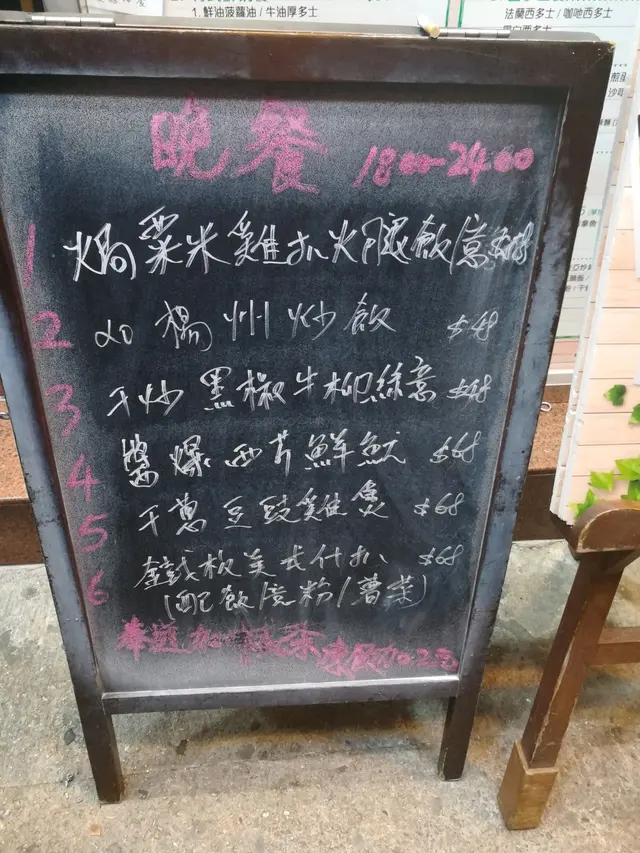 1. 鮮油菠蘿油 / 牛油厚多士
法蘭西多士 / 咖吔西多士
晚餐 18:00-24:00
1 焗粟米雞扒火腿飲意
2 炒 楊州炒飲 $48
3 干炒黑椒牛柳絲意 $48
4 醬爆西芹鮮魷 $68
5 干葱豆豉雞煲 $68
6 鉄板美式什扒 $68
(配飲意粉/薯菜)
加 茶 凍飲加2元